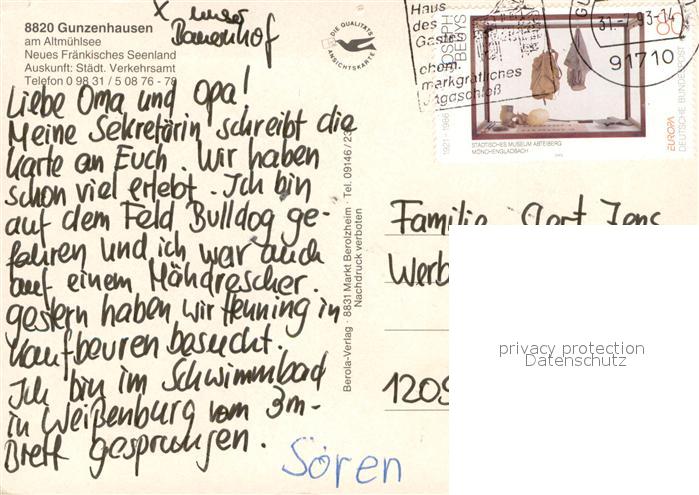 x unser
Bauernhof
8820 Gunzenhausen
am Altmühlsee
Neues Fränkisches Seenland
Auskunft: Städt. Verkehrsamt
Telefon 0 98 31 / 5 08 76 - 78
DIE QUALITÄTS
ANSICHTSKARTE
Liebe Oma und Opa!
Meine Sekretärin schreibt die
Karte an Euch. Wir haben
schon viel erlebt. Ich bin
auf dem Feld Bulldog ge-
fahren und ich war auch
auf einem Mähdrescher.
gestern haben wir Henning in
Kaufbeuren besucht.
Ich bin im Schwimmbad
in Weißenburg vom 3m-
Brett gesprungen.
Sören
Berola-Verlag · 8831 Markt Berolzheim · Tel. 09146 / 23
Nachdruck verboten
Haus
des
Gastes
ehem.
markgräfliches
Jagdschloß
31. 93-14
91710
JOSEPH
BEUYS
1921 - 1986
80
DEUTSCHE BUNDESPOST
EUROPA
STÄDTISCHES MUSEUM ABTEIBERG
MÖNCHENGLADBACH
1993
Familie Gert Jens
Werb
1209
privacy protection
Datenschutz